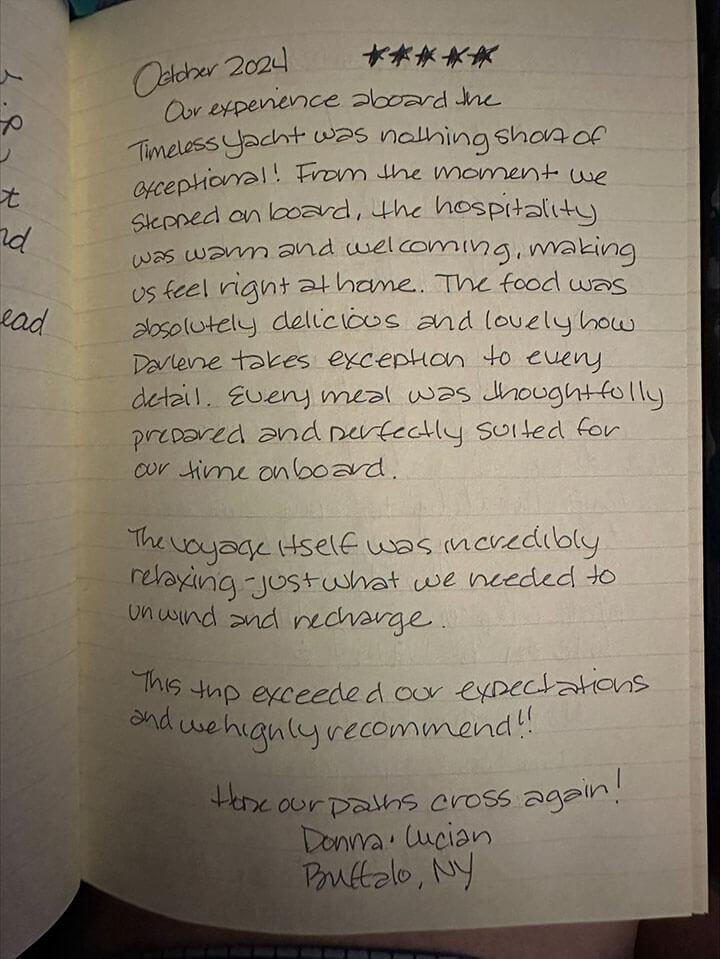 October 2024 ★★★★★
Our experience aboard the
Timeless Yacht was nothing short of
exceptional! From the moment we
stepped on board, the hospitality
was warm and welcoming, making
us feel right at home. The food was
absolutely delicious and lovely how
Darlene takes exception to every
detail. Every meal was thoughtfully
prepared and perfectly suited for
our time onboard.
The voyage itself was incredibly
relaxing - just what we needed to
unwind and recharge.
This trip exceeded our expectations
and we highly recommend!!
Hope our paths cross again!
Donna · Lucian
Buffalo, NY